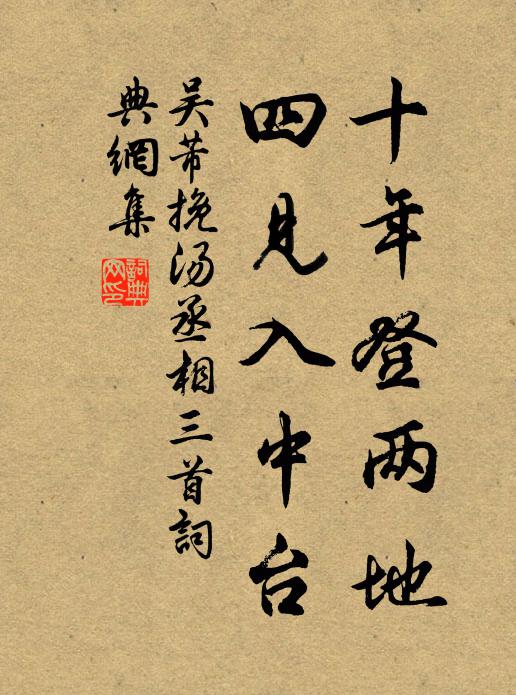 十年登两地
四见入中台
吴芾挽汤丞相三首詞
典網集
詞典网印